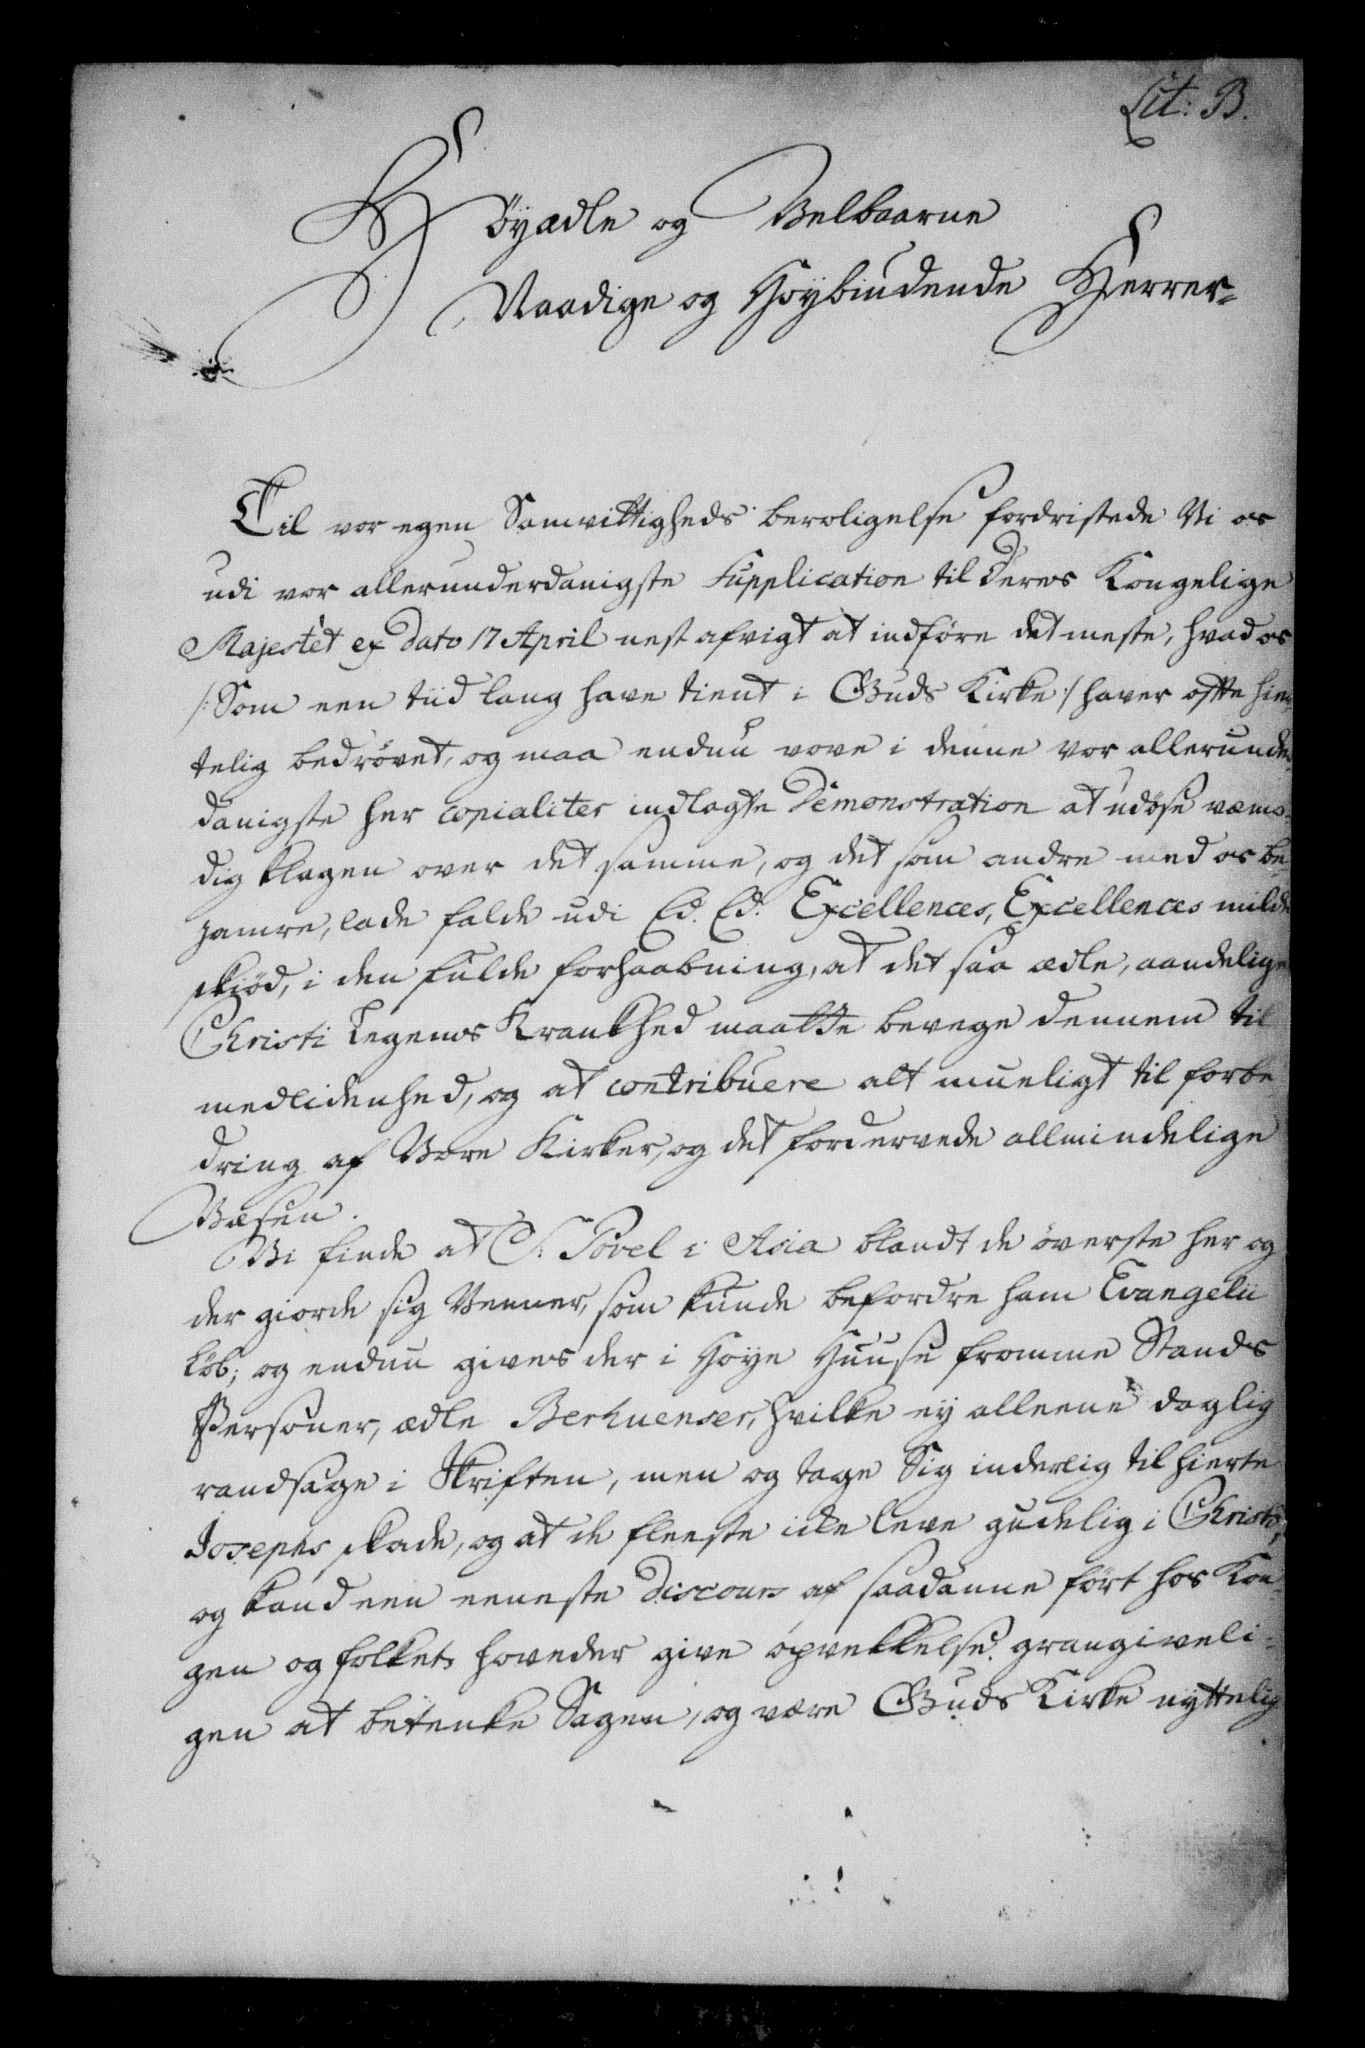 Lit: B.
Höyædle og Velbaarne
Naadige og Höybiudende Herrer
Til vor egen Samvittigheds beroligelse fordristede Vi os
udi vor allerunderdanigste Supplication til Deres Kongelige
Majestet ex Dato 17 April nest afvigt at indföre det meste, hvad os
/: Som een tiid lang have tient i Guds Kirke :/ haver ofte hier-
telig bedrövet, og maa endnu vove i denne vor allerunder-
danigste her copialiter indlagte Demonstration at udöse væmo-
dig klagen over det samme, og det som andre med os be-
jamre, lade falde udi Ed. Ed. Excellences, Excellences milde
skiöd, i den fulde forhaabning, at det saa ædle, aandelige
Christi Legems Krankhed maatte bevege dennem til
medlidenhed, og at contribuere alt mueligt til forbe-
dring af Vore Kirker, og det fordervede allmindelige
Væsen.
Vi finde at S: Povel i Asia blandt de överste her og
der giorde sig Venner, som kunde befordre ham Evangelii
löb; og endnu gives der i Höye Huuse fromme Stands
Personer, ædle Berhuenser, hvilke ey alleene daglig
randsage i Skriften, men og tage Sig inderlig til hierte
Josephs skade, og at de fleeste icke leve gudelig i Christo,
og kand een eeneste Discours af saadanne fört hos Kon-
gen og folkets hoveder give opvekkelse grangiveli-
gen at betenke Sagen, og være Guds Kirke nyttelig